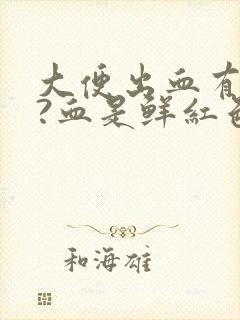 大便出血有
?血是鲜紅色
和海雄